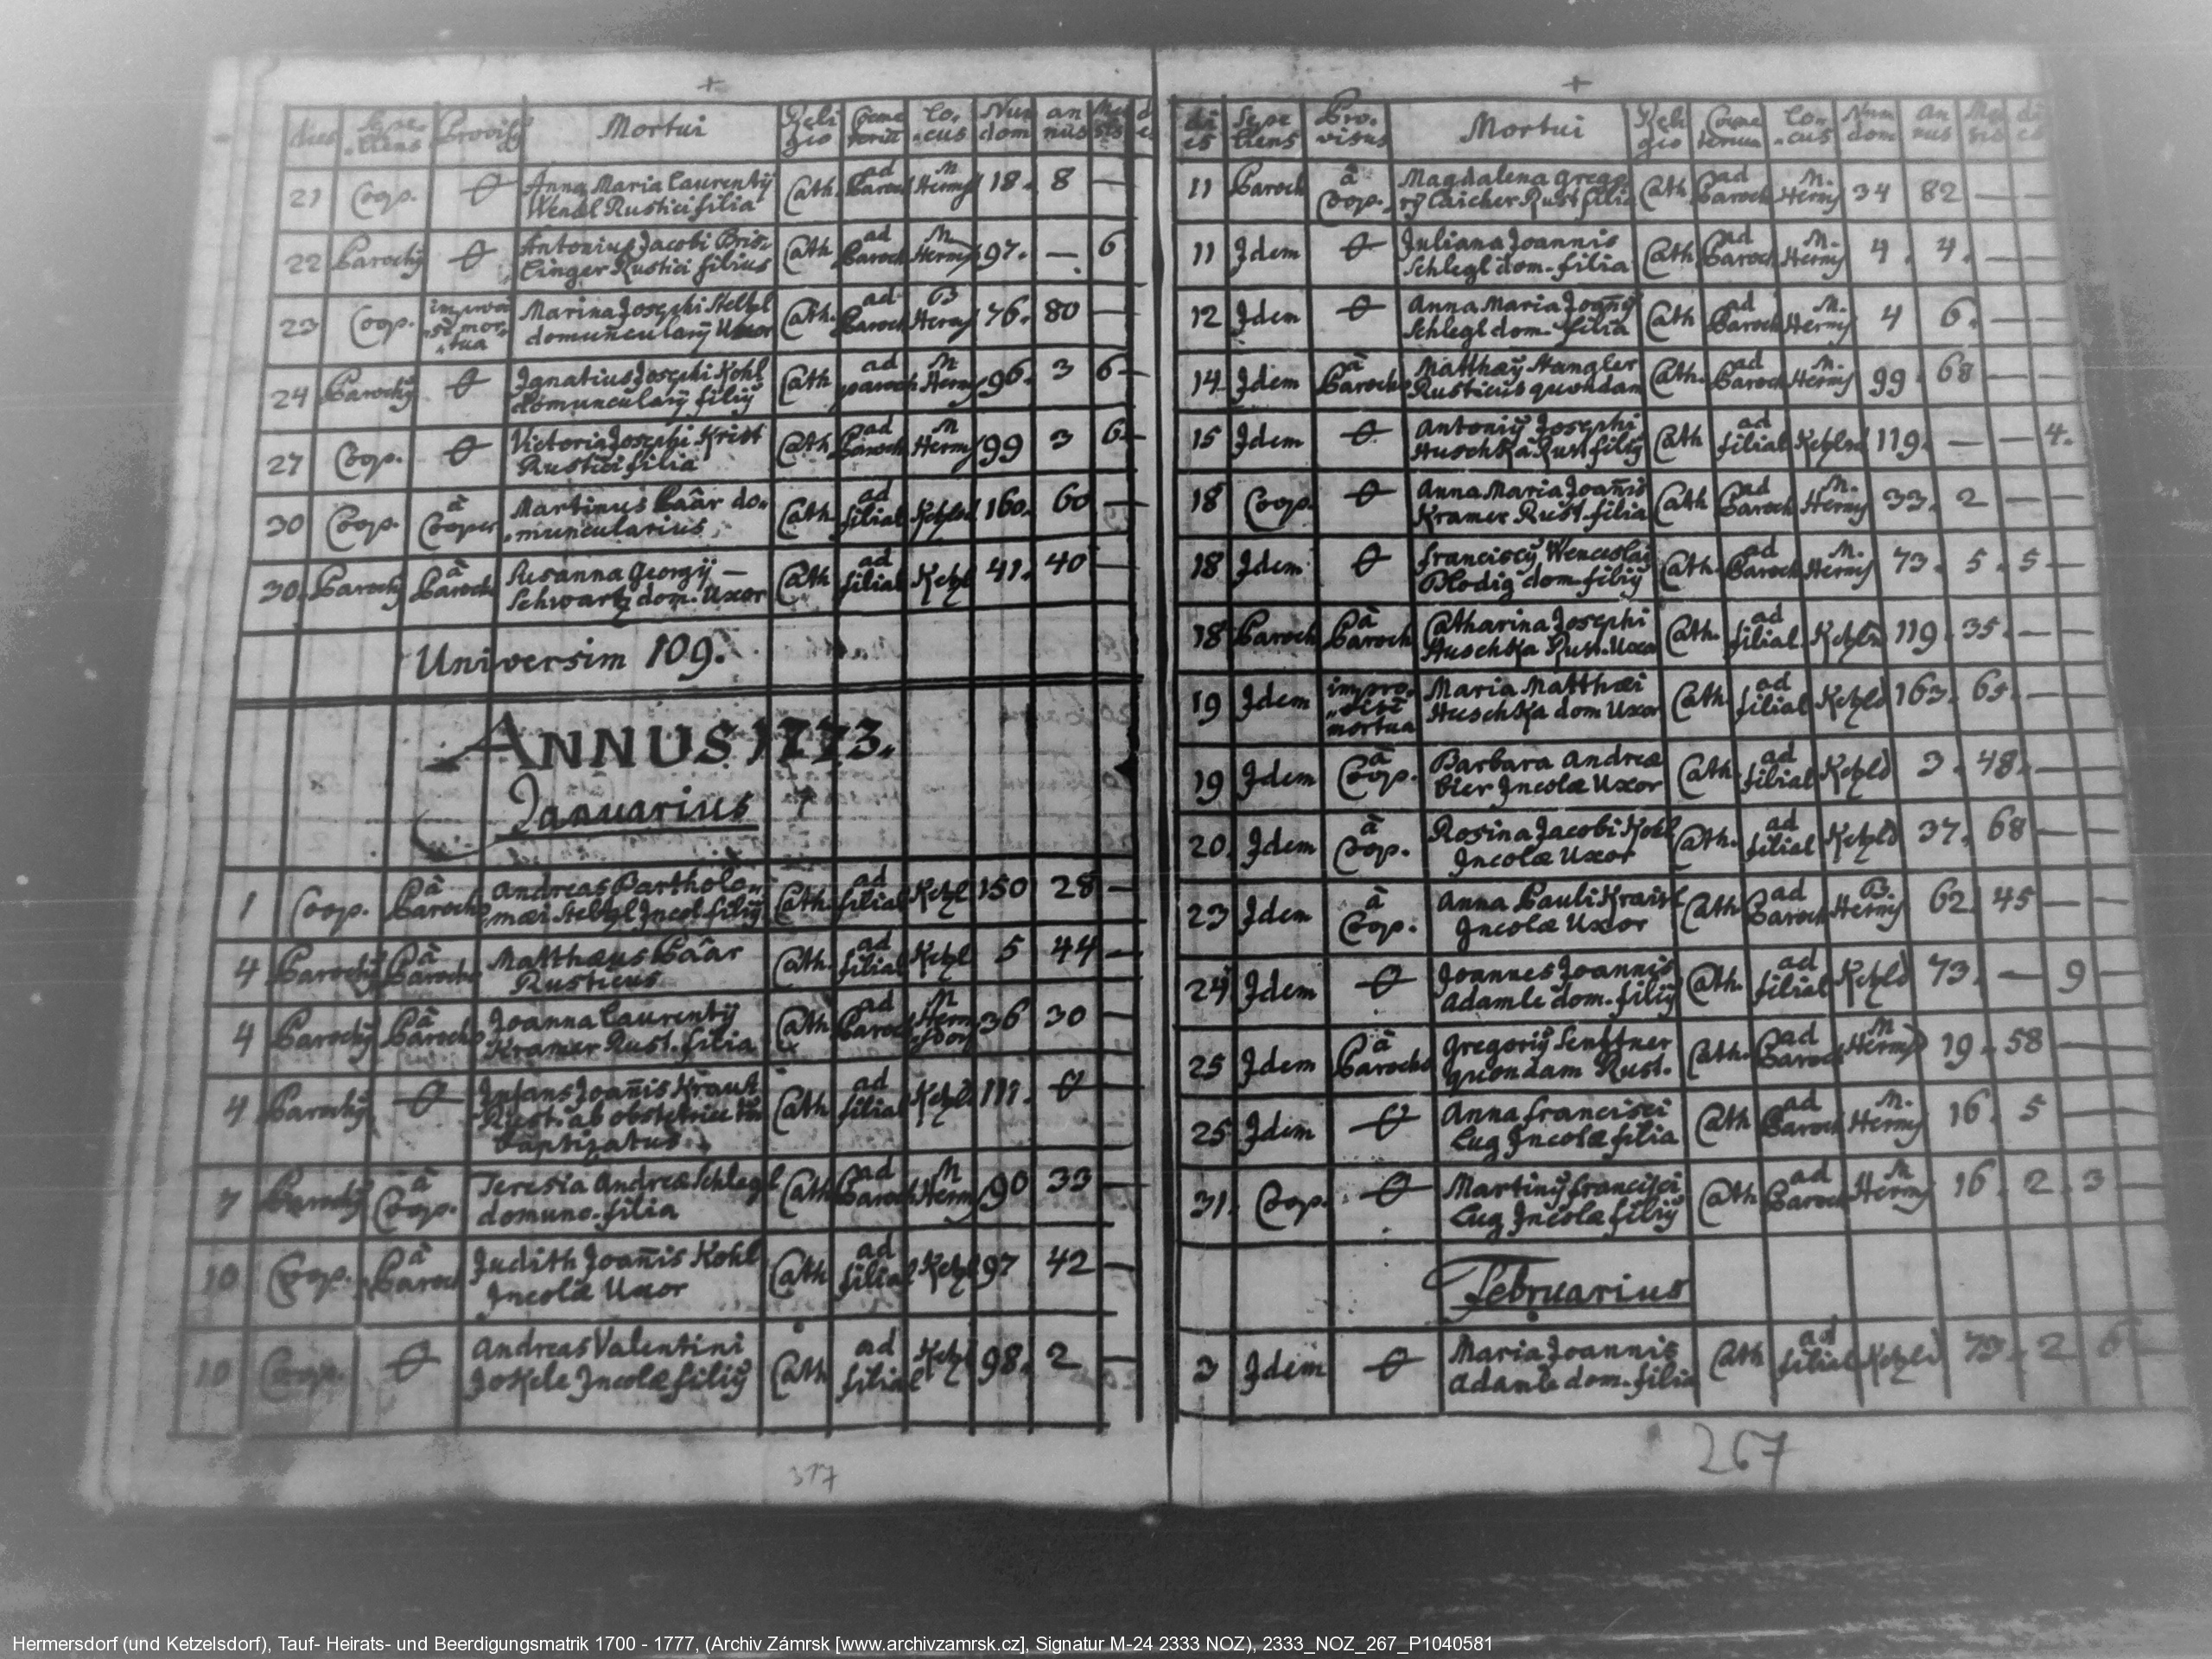 +
dies Sepeliens Provisus Mortui Religio Cœmeterium Locus Num dom annus Mensis
21 Coop. O Anna Maria Laurentÿ Wendl Rustici filia Cath. ad Paroch M Hermsd 18. 8 —
22 Parochÿ O Antonius Jacobi Brislinger Rustici filius Cath ad Paroch M Hermsd 97. — 6
23 Coop. improvise mortua Marina Josephi Stelzl domuñcularÿ Uxor Cath. ad Paroch B Hermsd 76. 80 —
24 Parochÿ O Ignatius Josephi Kohl domuncularÿ filiÿ Cath ad paroch M Hermsd 96. 3 6 —
27 Coop. O Victoria Josephi Krist Rustici filia Cath ad Paroch M Hermsd 99 3 6 —
30 Coop. à Cooper Martinus Paâr domuncularius Cath ad filial Ketzlsd 160. 60 —
30. Parochÿ à Parocho Susanna Georgÿ — Schwartz dom. Uxor Cath ad filial Ketzl 41. 40 —
Universim 109.
ANNUS 1773.
Januarius
1 Coop. à Parocho Andreas Bartholomæi Steltzl Incol. filiÿ Cath. ad filial Ketzl 150 28 —
4 Parochÿ à Parocho Matthæus Paâr Rusticus Cath. ad filial Ketzl 5 44 —
4 Parochÿ à Parocho Joanna Laurentÿ Kramer Rust. filia Cath ad Paroch M Hermsdorf 36 30 —
4 Parochÿ O Infans Joañis Kraut Rust. ab obstetrice baptizatus. Cath ad filial Ketzl. 111. O —
7 Parochÿ à Coop. Teresia Andreæ Schlegl domunc. filia Cath ad Paroch M Hermsd 90 33 —
10 Coop. à Paroch Judith Joañis Kohl Incolæ Uxor Cath ad filial Ketzl 97 42 —
10 Coop. O Andreas Valentini Jokele Incolæ filiÿ Cath ad filial Ketzl 98. 2 —
317
+
dies Sepeliens Provisus Mortui Religio Cœmeterium Locus Num dom Annus Mensis dies
11 Paroch à Coop. Magdalena Gregorÿ Laicher Rust filia Cath ad Paroch M. Hermsd 34 82 — —
11 Idem O Juliana Joannis Schlegl dom. filia Cath. ad Paroch M. Hermsd 4. 4. — —
12 Idem O Anna Maria Joañis Schlegl dom. filia Cath ad Paroch M. Hermsd 4 6. — —
14 Idem à Parocho Matthæÿ Stangler Rusticus quondam Cath. ad Paroch M. Hermsd 99. 68 — —
15 Idem O Antoniÿ Josephi Huschka Rust filiÿ Cath ad filial Ketzlsd 119. — — 4.
18 Coop. O Anna Maria Joañis Kramer Rust. filia Cath ad Paroch M. Hermsd 33. 2 — —
18 Idem O Franciscÿ Wenceslai Blodig dom. filiÿ Cath. ad Paroch M. Hermsd 73. 5. 5 —
18 Paroch à Paroch Catharina Josephi Huschka Rust. Uxor Cath. ad filial Ketzls 119. 35. — —
19 Idem improvise mortua Maria Matthæi Huschka dom Uxor Cath ad filial Ketzld 163. 65. — —
19 Idem à Coop. Barbara Andreæ Bier Incolæ Uxor Cath. ad filial Ketzld 3. 48. — —
20. Idem à Coop. Rosina Jacobi Kohl Incolæ Uxor Cath. ad filial Ketzld 37. 68 — —
23 Idem à Coop. Anna Pauli Kraisl Incolæ Uxor Cath ad Paroch B. Hermsd 62. 45 — —
24 Idem O Joannes Joannis Adamle dom. filiÿ Cath. ad filial Ketzld 73. — 9 —
25 Idem à Parocho Gregoriÿ Senftner quondam Rust. Cath. ad Paroch M Hermsd 19. 58 —
25 Idem O Anna Francisci Lug Incolæ filia Cath ad Paroch M. Hermsd 16. 5 —
31. Coop. O Martinÿ Francisci Lug Incolæ filiÿ Cath ad Paroch M Hermsd 16. 2. 3 —
Februarius
3 Idem O Maria Joannis Adamle dom. filia Cath ad filial Ketzld 73. 2 6 —
267
Hermersdorf (und Ketzelsdorf), Tauf- Heirats- und Beerdigungsmatrik 1700 - 1777, (Archiv Zámrsk [www.archivzamrsk.cz], Signatur M-24 2333 NOZ), 2333_NOZ_267_P1040581